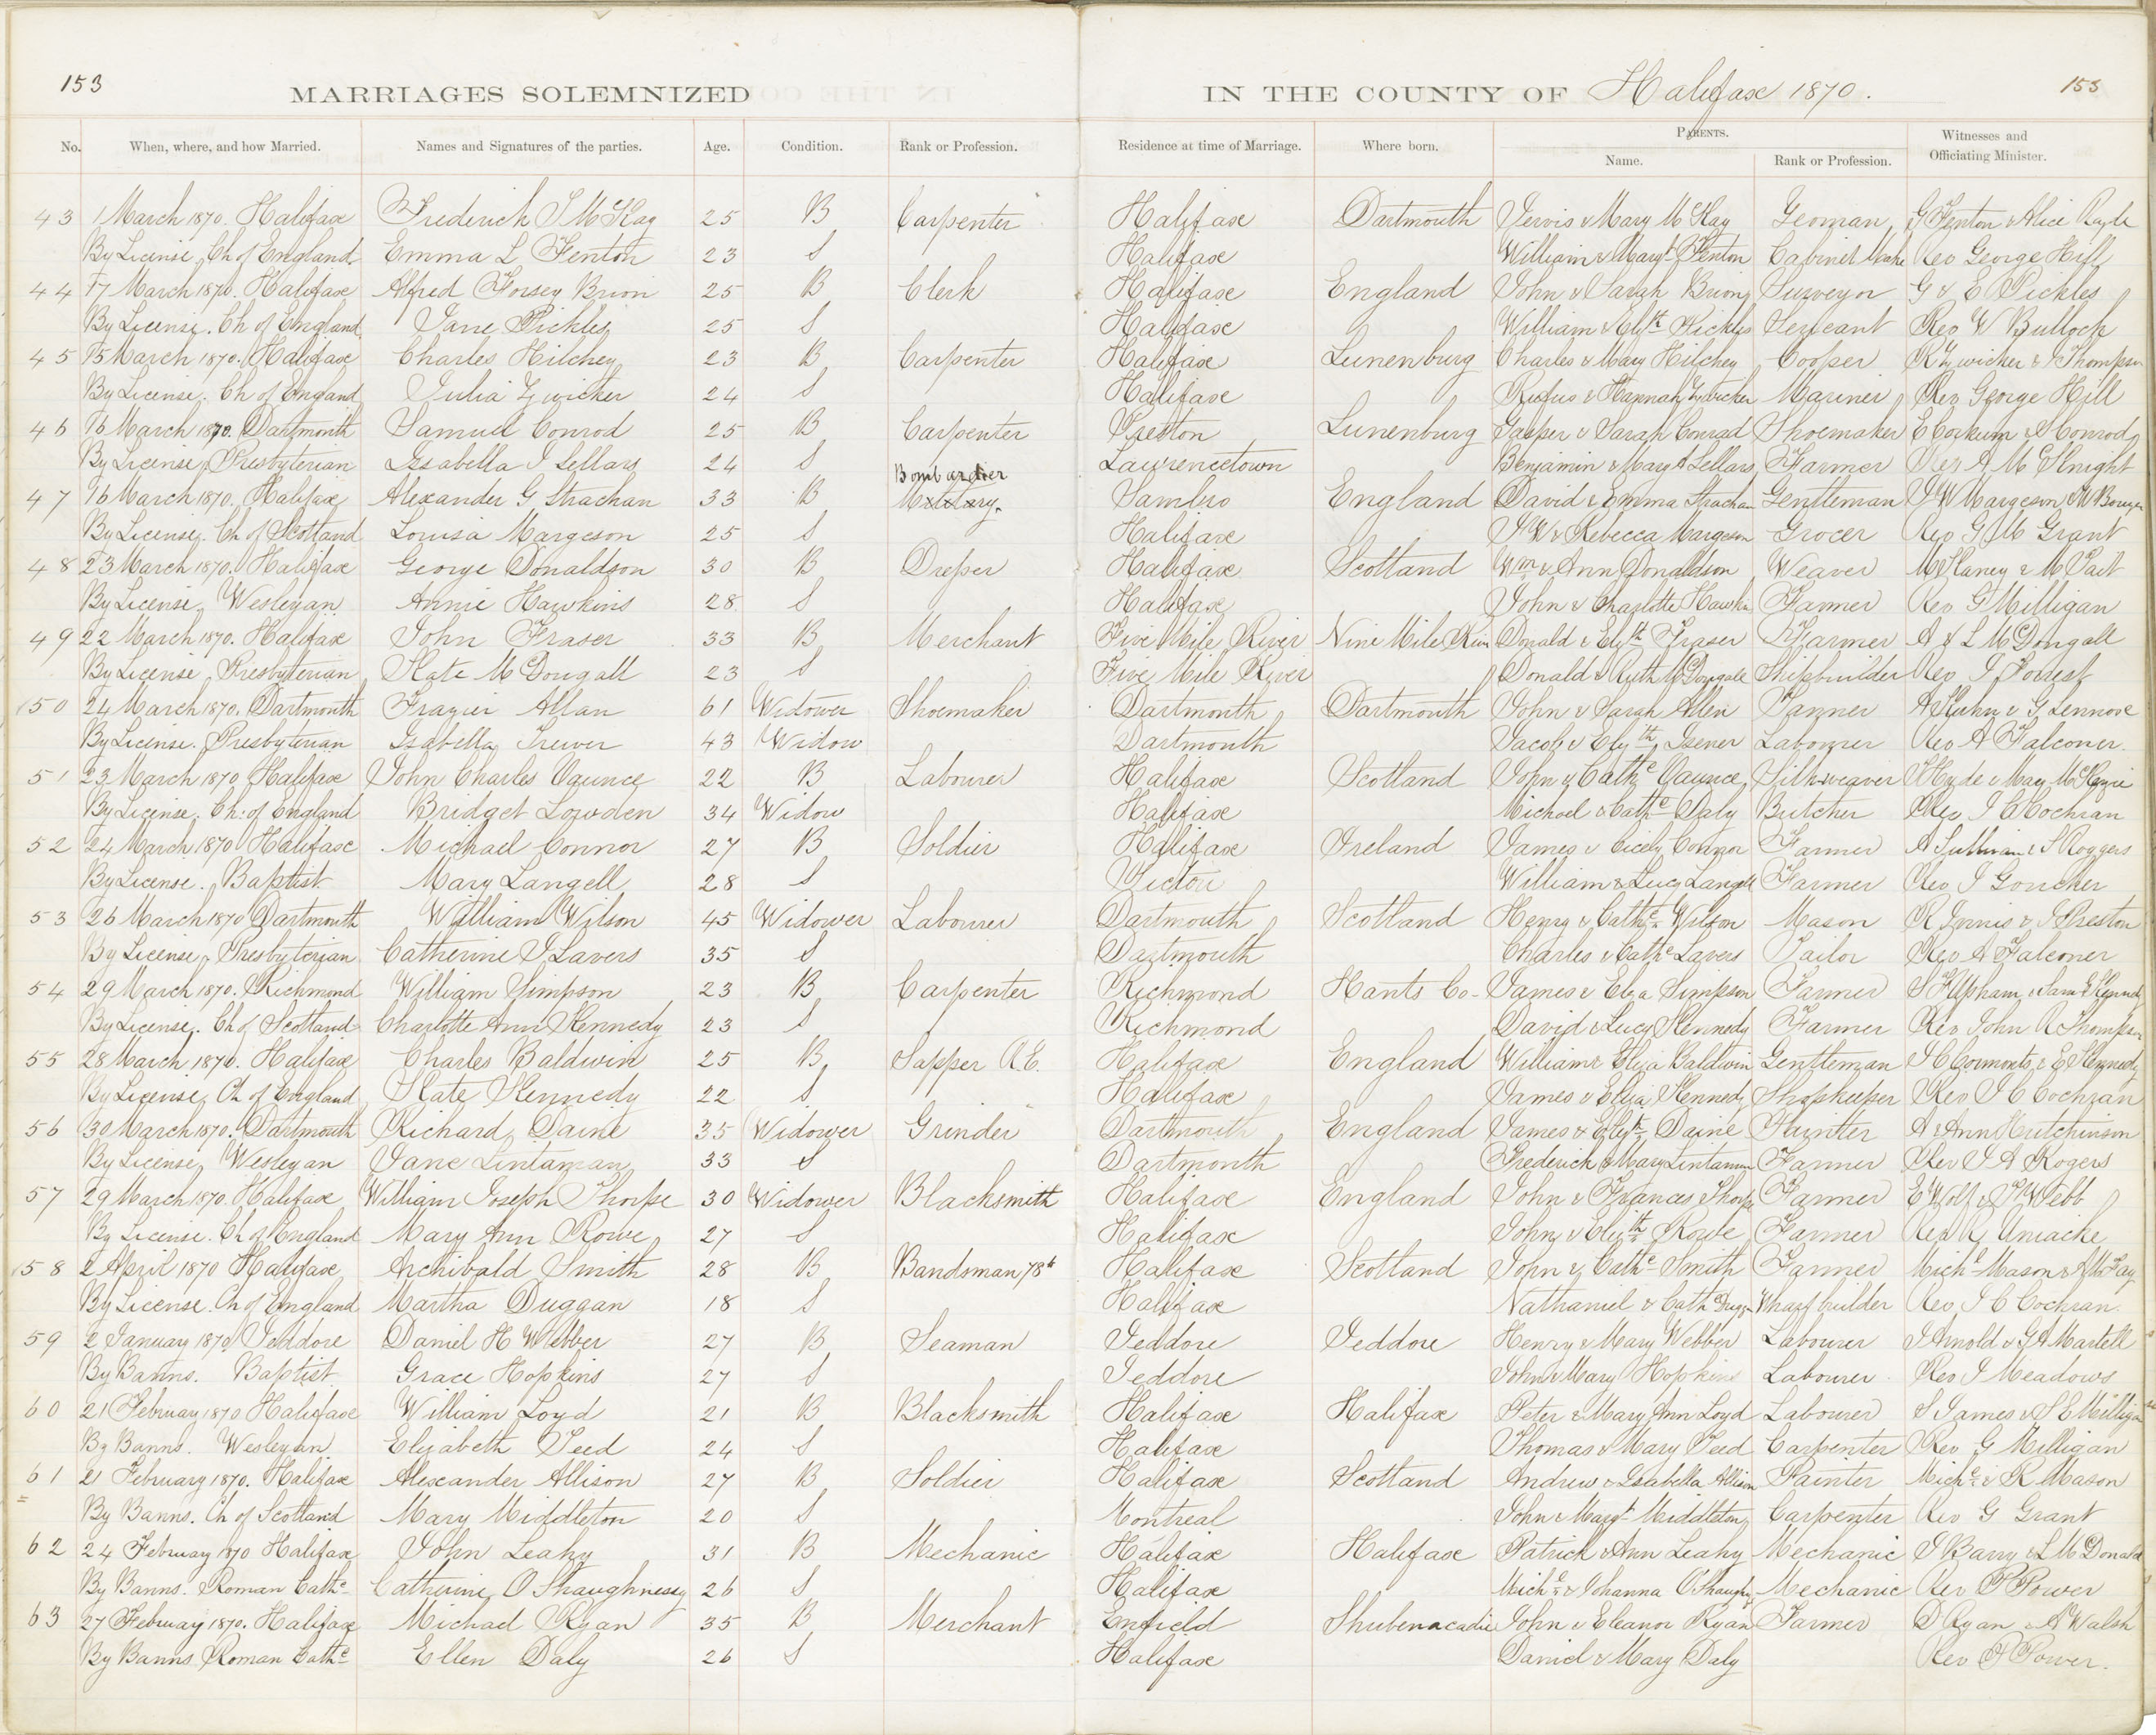 153
MARRIAGES SOLEMNIZED
IN THE COUNTY OF Halifax 1870.
153
No. When, where, and how Married. Names and Signatures of the parties. Age. Condition. Rank or Profession. Residence at time of Marriage. Where born. PARENTS. Name. Rank or Profession. Witnesses and Officiating Minister.
43 1 March 1870. Halifax Frederick S McKay 25 B Carpenter Halifax Dartmouth Jervis & Mary McKay Yeoman G Fenton & Alice
By License, Ch of England. Emma L Fenton 23 S Halifax William & Margt Fenton Cabinet Make Rev George Hill
44 17 March 1870. Halifax Alfred Forsey Brion 25 B Clerk Halifax England John & Sarah Brion Surveyor G & E Pickles
By License. Ch of England Jane Pickles 25 S Halifax William & Elzth Pickles Sergeant Rev W Bullock
45 15 March 1870. Halifax Charles Hilchey 23 B Carpenter Halifax Lunenburg Charles & Mary Hilchey Cooper R Zwicker & J Thompson
By License. Ch of England Julia Zwicker 24 S Halifax Rufus & Hannah Zwicker Mariner Rev George Hill
46 16 March 1870. Dartmouth Samuel Conrod 25 B Carpenter Preston Lunenburg Casper & Sarah Conrad Shoemaker E Corkum & S Conrod
By License, Presbyterian Isabella J Sellars 24 S Lawrencetown Benjamin & Mary A Sellars Farmer Rev A McKnight
Bombardier
47 16 March 1870. Halifax Alexander G Strachan 33 B Military. Sambro England David & Emma Strachan Gentleman J W Margeson & W Bowyer
By License. Ch of Scotland Louisa Margeson 25 S Halifax J W & Rebecca Margeson Grocer Rev G M Grant
48 23 March 1870. Halifax George Donaldson 30 B Dresser Halifax Scotland Wm & Ann Donaldson Weaver M Slaney &
By License, Wesleyan Annie Hawkins 28 S Halifax John & Charlotte Hawkin Farmer Rev G Milligan
49 22 March 1870. Halifax John Fraser 33 B Merchant Five Mile River Nine Mile River Donald & Elyth Fraser Farmer A & L McDougall
By License Presbyterian Kate McDougall 23 S Five Mile River Donald & Ruth McDougall Shipbuilder Rev J Forrest
150 24 March 1870. Dartmouth Frazier Allan 61 Widower Shoemaker Dartmouth Dartmouth John & Sarah Allen Tanner A Kuhn & G Lennox
By License. Presbyterian Isabella 43 Widow Dartmouth Jacob & Elyth Isener Labourer Rev A Falconer.
51 23 March 1870 Halifax John Charles Vaunce 22 B Labourer Halifax Scotland John & Cathe Vaunce Silkweaver J Hyde & Mary McKenzie
By License. Ch: of England Bridget Lowden 34 Widow Halifax Michael & Cathe Daly Butcher Rev J C Cochran
52 24 March 1870 Halifax Michael Connor 27 B Soldier Halifax Ireland James & Cicely Connor Farmer A Sullivan & S Roggers
By License. Baptist Mary Langell 28 S Pictou William & Lucy Langell Farmer Rev J Goucher
53 26 March 1870 Dartmouth William Wilson 45 Widower Labourer Dartmouth Scotland Henry & Cathe Wilson Mason R Innis & J Preston
By License, Presbyterian Catherine J Lavers 35 S Dartmouth Charles & Cathe Lavers Tailor Rev A Falconer
54 29 March 1870. Richmond William Simpson 23 B Carpenter Richmond Hants Co- James & Elza Simpson Farmer S F Upham & Sam E Kennedy
By License. Ch of Scotland Charlotte Ann Kennedy 23 S Richmond David & Lucy Kennedy Farmer Rev John R Thompson
55 28 March 1870. Halifax Charles Baldwin 25 B Sapper R.E. Halifax England William & Eliza Baldwin Gentleman J C Cormonts & E Kennedy
By License, Ch of England Kate Kennedy 22 S Halifax James & Eliza Kennedy Shopkeeper Rev J C Cochran
56 30 March 1870. Dartmouth Richard Daine 35 Widower Grinder Dartmouth England James & Elyth Daine Painter A & Ann Hutchinson
By License, Wesleyan Jane Lintaman 33 S Dartmouth Frederick & Mary Lintaman Farmer Rev J A Rogers
57 29 March 1870. Halifax William Joseph Thorpe 30 Widower Blacksmith Halifax England John & Frances Thorpe Farmer E Wolf & J Webb
By License. Ch of England Mary Ann Rowe 27 S Halifax John & Elizth Rowe Farmer Rev R Uniacke
158 2 April 1870 Halifax Archibald Smith 28 B Bandsman 78th Halifax Scotland John & Cathe Smith Farmer Michl Mason & A McKay
By License. Ch of England Martha Duggan 18 S Halifax Nathaniel & Cath Duggn Wharf builder Rev J C Cochran.
59 2 January 1870 Jeddore Daniel H Webber 27 B Seaman Jeddore Jeddore Henry & Mary Webber Labourer J Arnold & G A Martell
By Banns. Baptist Grace Hopkins 27 S Jeddore John & Mary Hopkins Labourer Rev J Meadows
60 21 February 1870 Halifax William Loyd 21 B Blacksmith Halifax Halifax Peter & Mary Ann Loyd Labourer S James & S E Milligan
By Banns. Wesleyan Elizabeth Teed 24 S Halifax Thomas & Mary Teed Carpenter Rev G Milligan
61 21 February 1870. Halifax Alexander Allison 27 B Soldier Halifax Scotland Andrew & Isabella Allison Painter Michl & R Mason
By Banns. Ch of Scotland Mary Middleton 20 S Montreal John & Margt Middleton Carpenter Rev G Grant
62 24 February 1870 Halifax John Leahy 31 B Mechanic Halifax Halifax Patrick & Ann Leahy Mechanic J Barry & L McDonald
By Banns. Roman Cathc Catherine O Shaughnessy 26 S Halifax Michl & Johanna O'Shaughy Mechanic Rev P Power
63 27 February 1870. Halifax Michael Ryan 35 B Merchant Enfield Shubenacadie John & Eleanor Ryan Farmer D Ryan & A Walsh
By Banns Roman Cathc Ellen Daly 26 S Halifax Daniel & Mary Daly Rev P Power.